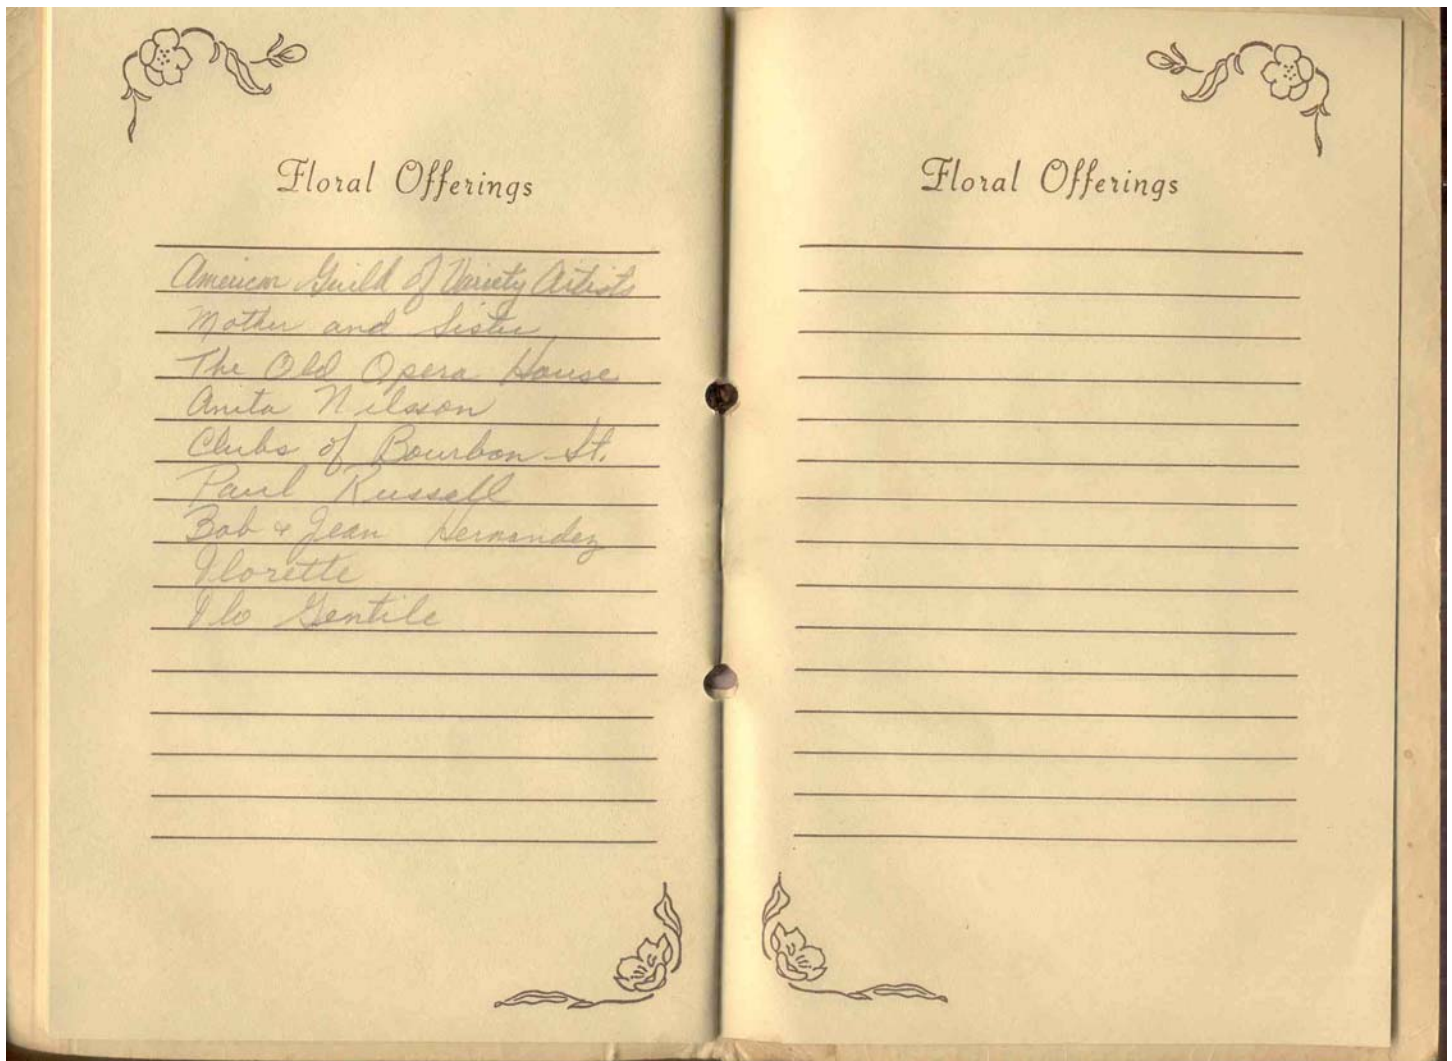 Floral Offerings
American Guild of Variety Artists
Mother and Sister
The Old Opera House
Anita Nilsson
Clubs of Bourbon St.
Paul Russell
Bob & Jean Hernandez
Florette
Flo Gentile
Floral Offerings